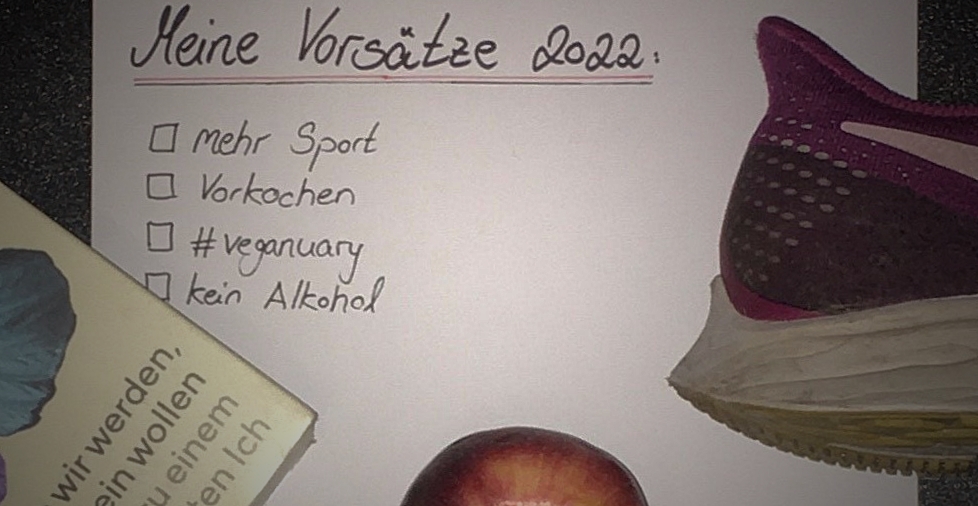 Meine Vorsätze 2022:
mehr Sport
Vorkochen
#veganuary
kein Alkohol
wir werden,
ein wollen
zu einem
ten Ich